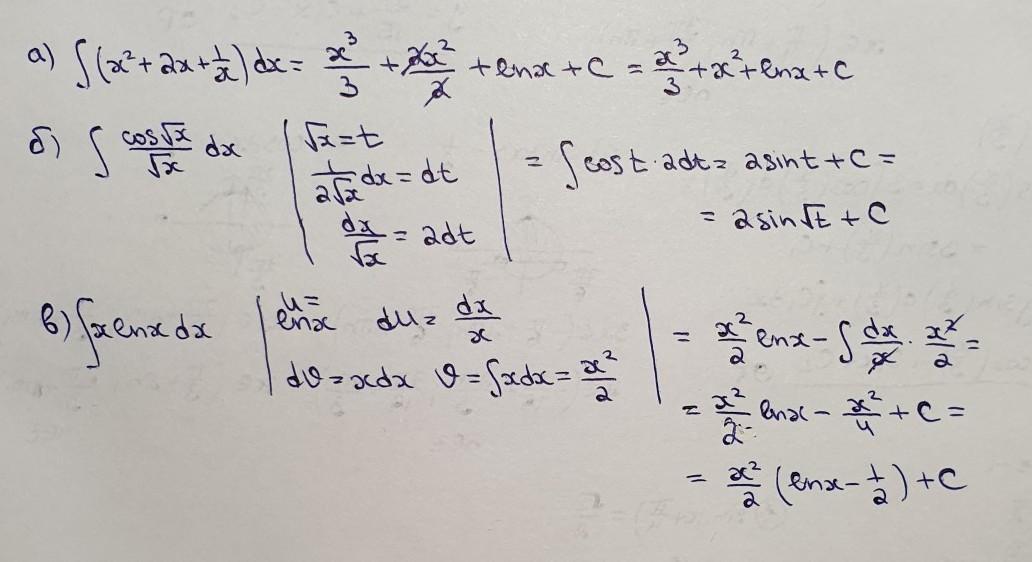 а) ∫(x²+2x+1/x)dx = x³/3 + 2x²/2 + lnx + C = x³/3 + x² + lnx + C
б) ∫ cos√x/√x dx | √x = t
1/(2√x) dx = dt
dx/√x = 2dt | = ∫cost·2dt = 2sint + C =
= 2sin√t + C
в) ∫xlnxdx | u = lnx du = dx/x
dv = xdx v = ∫xdx = x²/2 | = x²/2 lnx − ∫ dx/x · x²/2 =
= x²/2 lnx − x²/4 + C =
= x²/2 (lnx − 1/2) + C